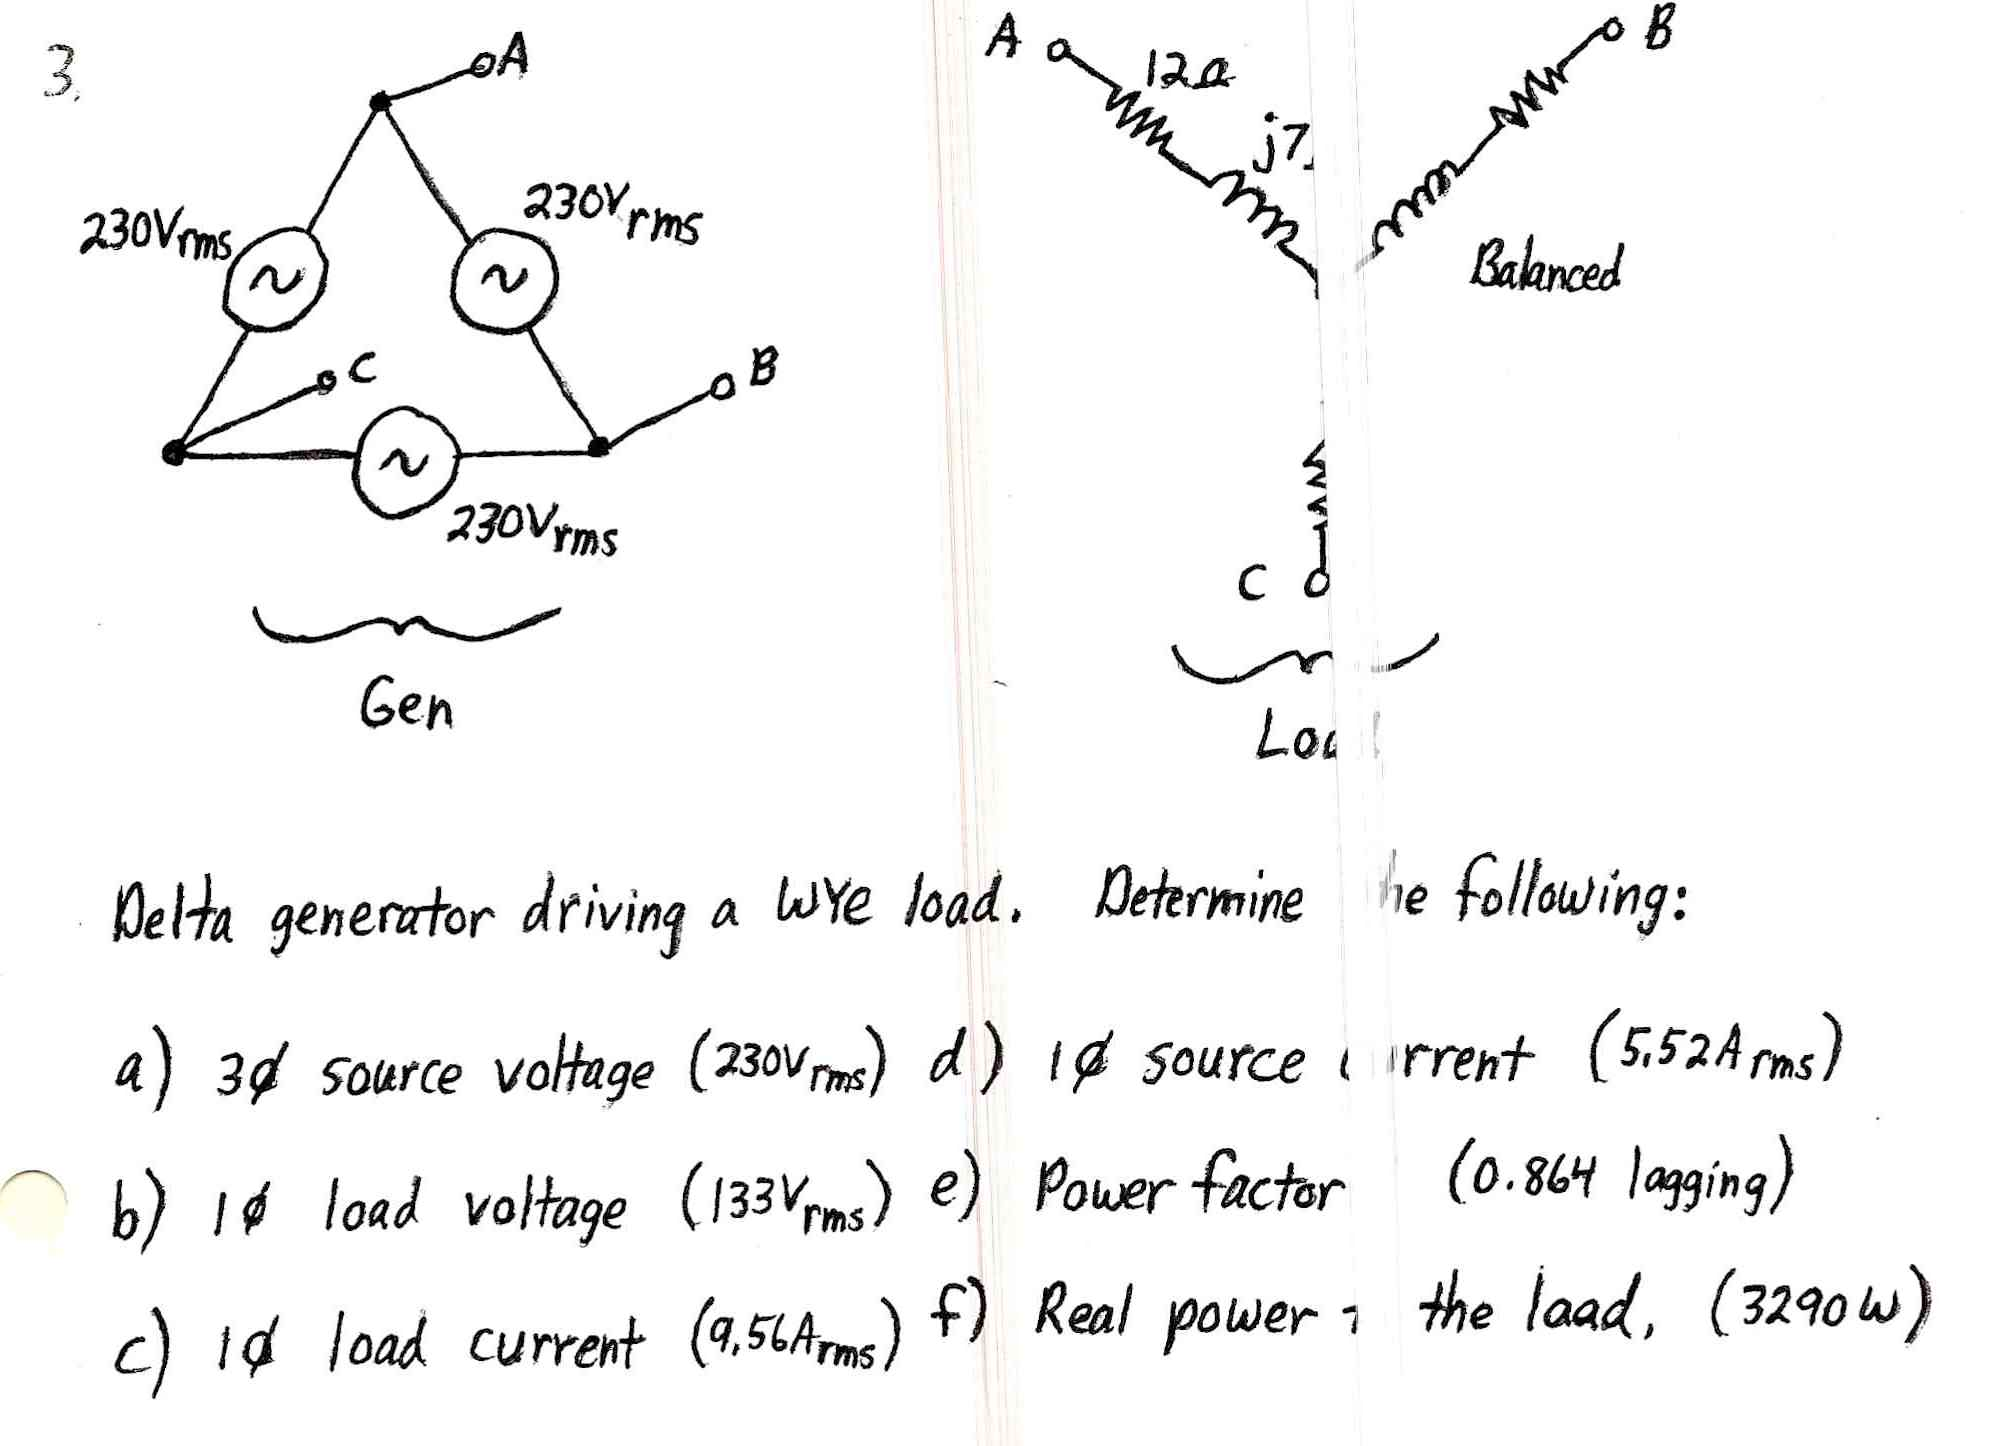 3.
A
230Vrms
230Vrms
C
B
230Vrms
Gen
A
12Ω
B
Balanced
C
Delta generator driving a WYe load. Determine following:
a) 3ϕ source voltage (230Vrms) d) 1ϕ source (5.52A rms)
b) 1ϕ load voltage (133Vrms) e) Power factor (0.864 lagging)
c) 1ϕ load current (9.56Arms) f) Real power the laad, (3290W)